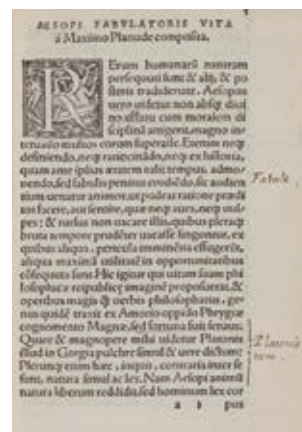 AESOPI FABVLATORIS VITA
à Maximo Planude composita.
RErum humanarũ naturam
persequuti sunt & alij, & po
steris tradiderunt, Aesopus
uero uidetur non absqʒ diui
no afflatu cum moralem di
sciplinã attigerit, magno in-
teruallo multos eorum superasse. Etenim neqʒ
definiendo, neqʒ ratiocinãdo, neqʒ ex historia,
quam ante ipsius ætatem tulit tempus, admo-
nendo, sed fabulis penitus erudiẽdo, sic audien
tium uenatur animos, ut pudeat ratione prædi
tos facere, aut sentire, quæ neqʒ aues, neqʒ uul-
pes: & rursus non uacare illis, quibus pleraqʒ
bruta tempore prudẽter uacasse finguntur, ex
quibus aliqua, pericula imminẽtia effugerũt,
aliqua maximã utilitatẽ in opportunitatibus
cõsequuta sunt. Hic igitur qui uitam suam phi
losophicæ reipublicæ imaginẽ proposuerat, &
operibus magis ꝗ̃ uerbis philosophatus, ge-
nus quidẽ traxit ex Amorio oppido Phrygiæ
cognomento Magnæ, sed fortuna fuit seruus.
Quare & magnopere mihi uidetur Platonis
illud in Gorgia pulchre simul & uere dictum:
Plerunqʒ enim hæc, inquit, contraria inter se
sunt, natura simul ac lex. Nam Aesopi animũ
natura liberum reddidit, sed hominum lex cor
a 3 pus
Fabulæ.